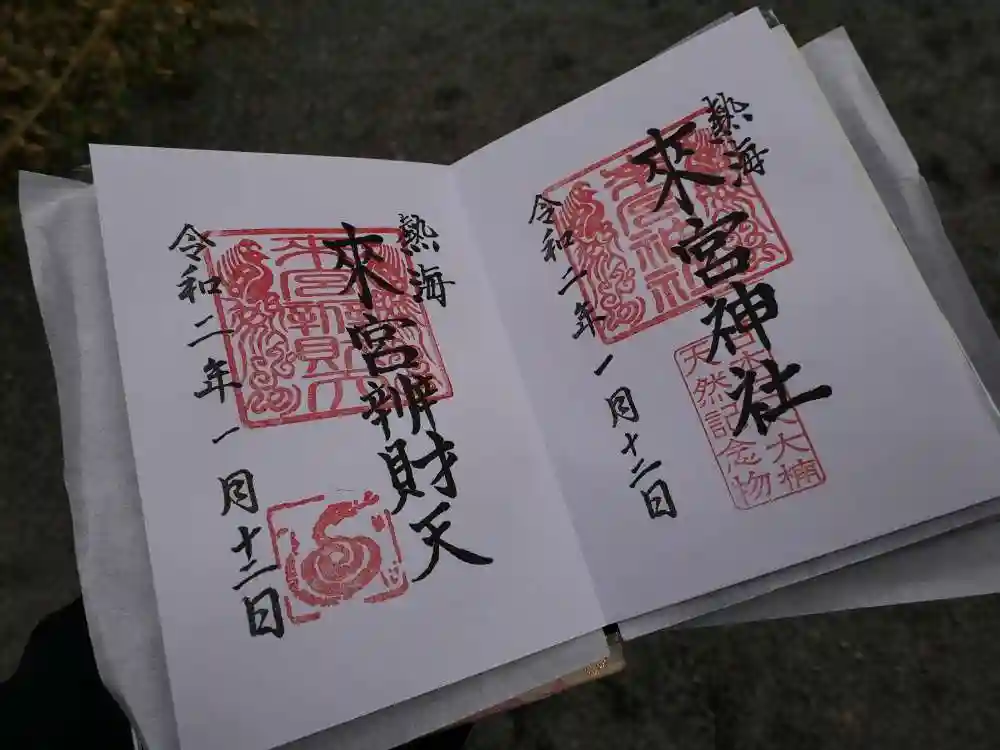 熱海
來宮神社
令和二年一月十二日
天然記念物
大楠
熱海
來宮辨財天
令和二年一月十二日